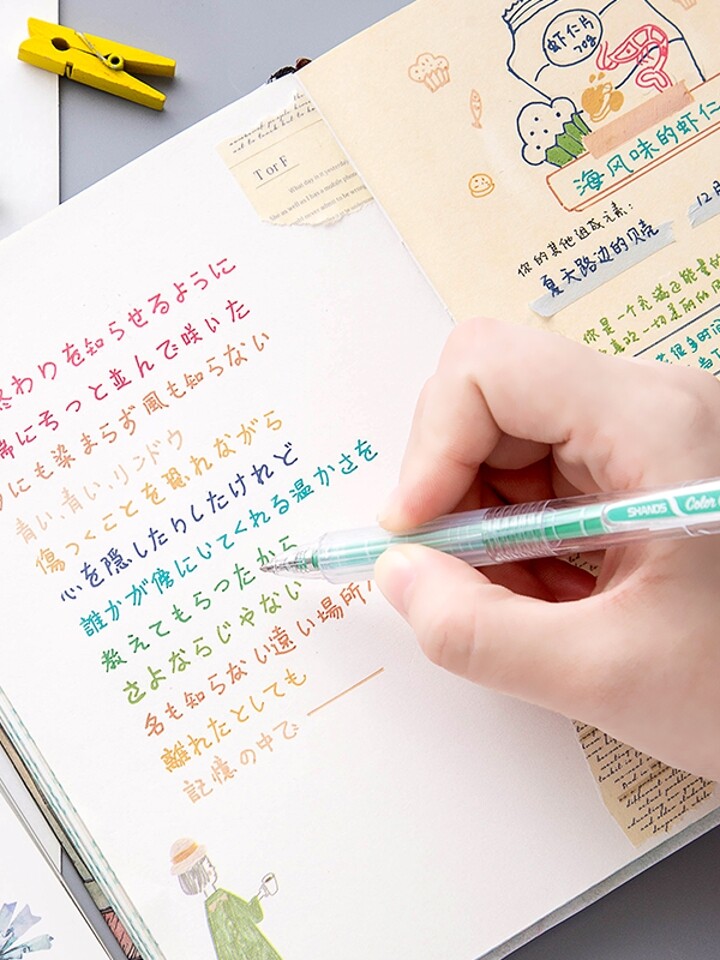 終わりを知らせるように
にそっと並んで咲いた
にも染まらず風も知らない
青い、青い、リンドウ
傷つくことを恐れながら
心を隠したりしたけれど
誰かが傍にいてくれる温かさを
教えてもらったから
さよならじゃない
名も知らない遠い場所
離れたとしても
記憶の中で
TorF
What day is it yesterday
虾仁片
70g
海风味的虾仁
你的其他组成元素:
夏天路边的贝壳
12月
你是一个充满正能量的
喜欢一切美丽的
很多时间
SHANDS Color